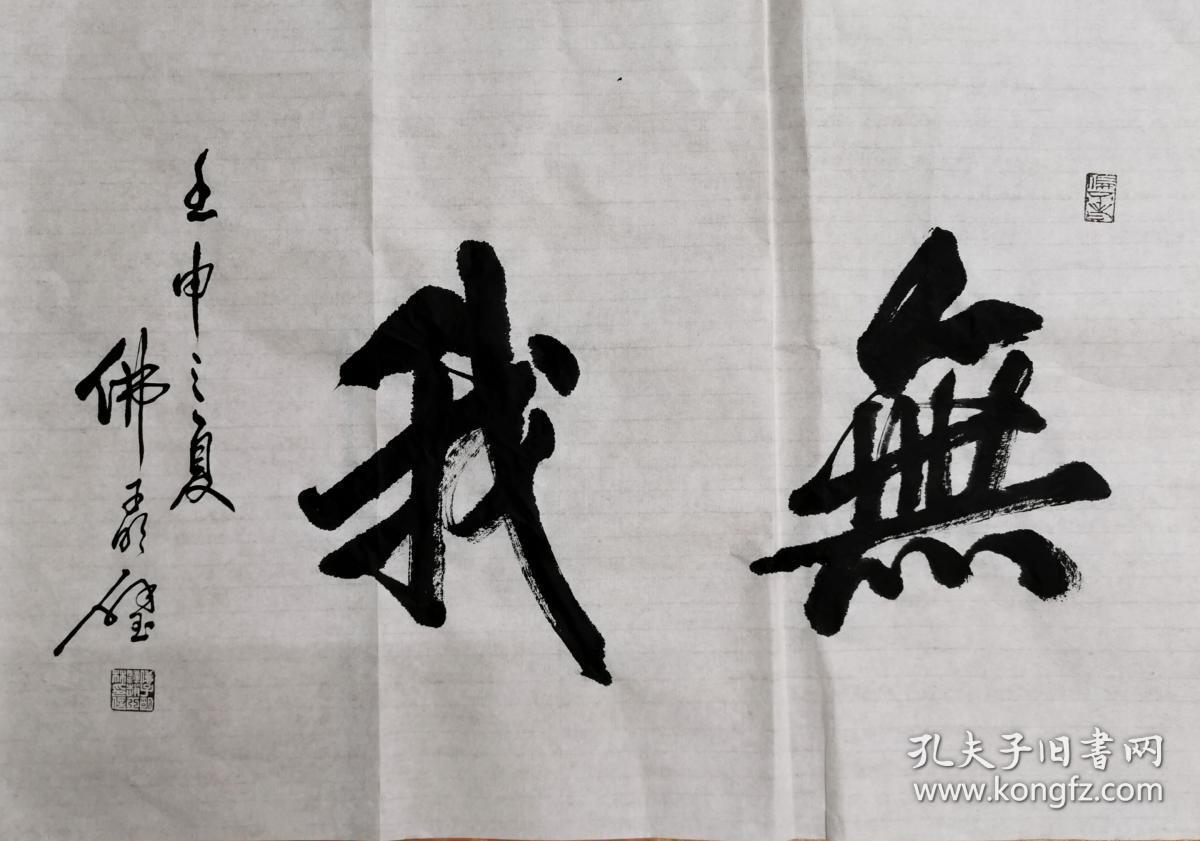 無我
壬申之夏
佛
孔夫子旧書网
www.kongfz.com